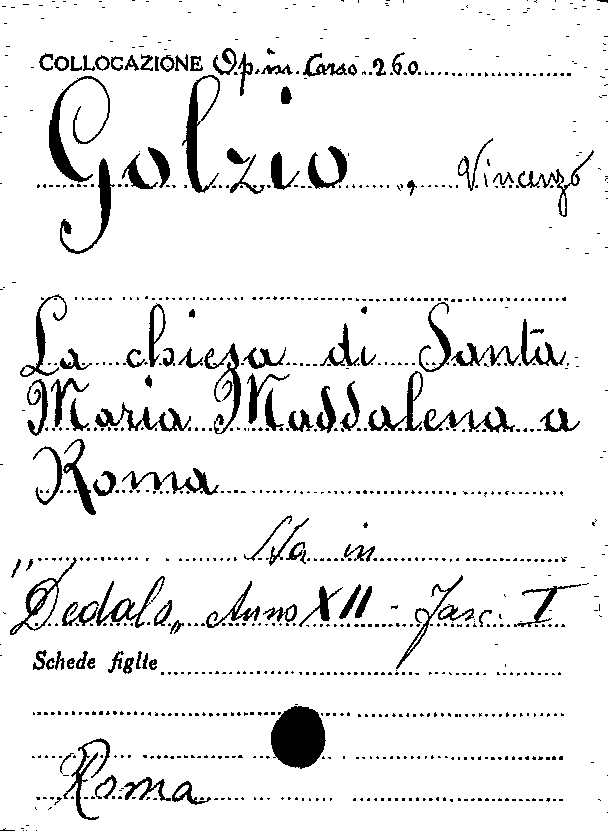 COLLOCAZIONE Op. in Corso 260
Golzio, Vincenzo
La chiesa di Santa
Maria Maddalena a
Roma
Sta in
"Dedalo„ Anno XII - Fasc. I
Schede figlie
Roma